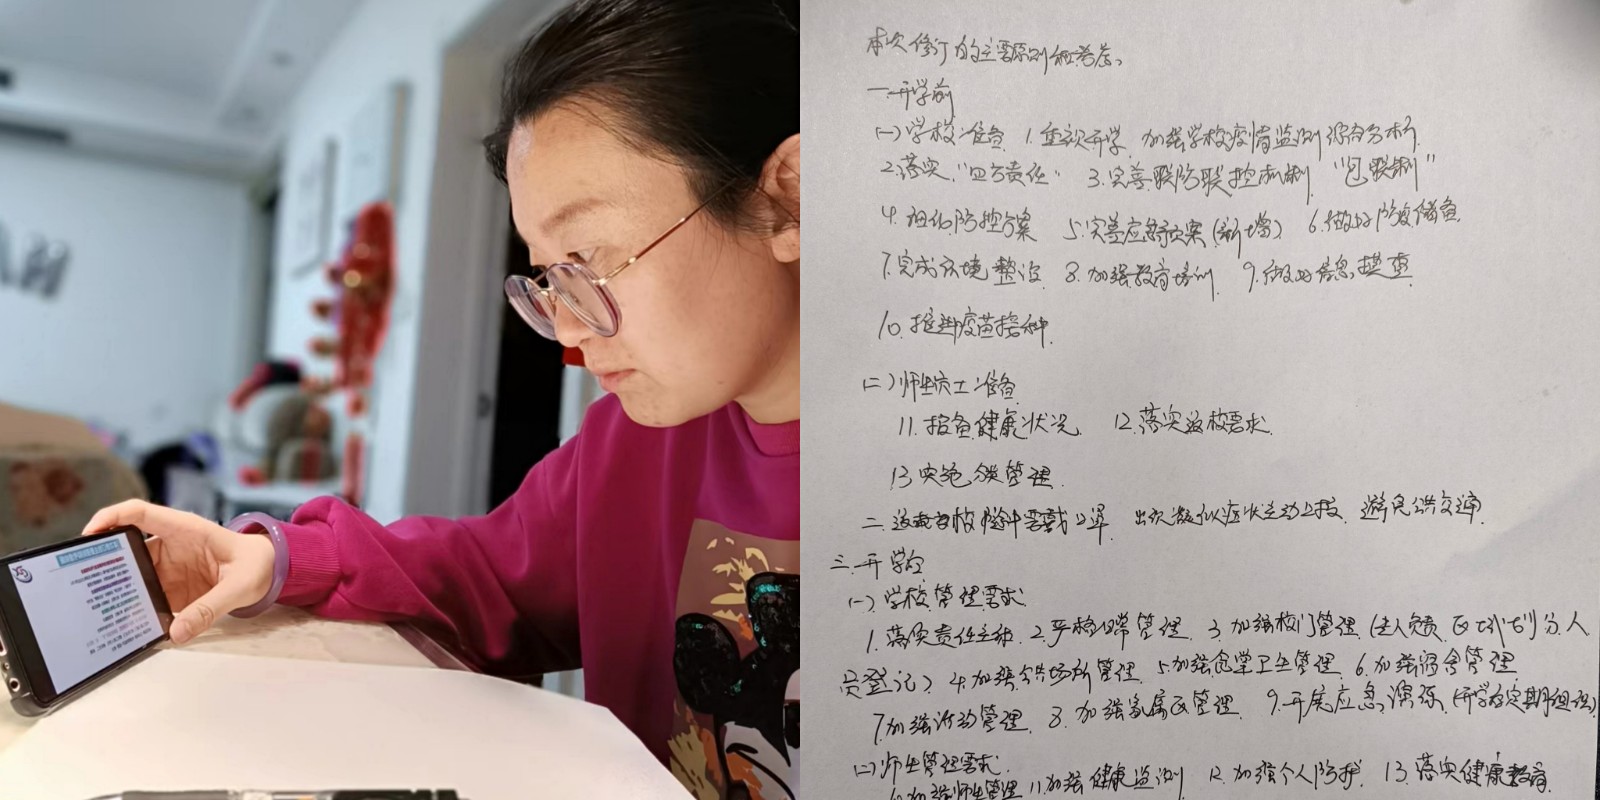 本次修订的主要原则和考虑。
一.开学前
(一)学校准备 1.重视开学,加强学校疫情监测预警分析
2.落实"四方责任" 3.完善联防联控机制 "包联制"
4.细化防控方案 5.完善应急预案(新增) 6.做好防疫储备
7.完成环境整治 8.加强教育培训 9.做好信息摸查
10.推进疫苗接种.
(二)师生员工准备
11.报备健康状况 12.落实返校要求.
13.实施分类管理.
二.返校途中需戴口罩 出现疑似症状主动上报 避免公共交通
三.开学后
(一)学校管理要求
1.落实责任主体 2.严格日常管理 3.加强校门管理(专人负责 区域划分 人
员登记) 4.加强公共场所管理 5.加强食堂卫生管理 6.加强宿舍管理
7.加强活动管理 8.加强家属区管理 9.开展应急演练(开学后定期组织)
(二)师生管理要求.
10.加强师生管理 11.加强健康监测 12.加强个人防护 13.落实健康教育